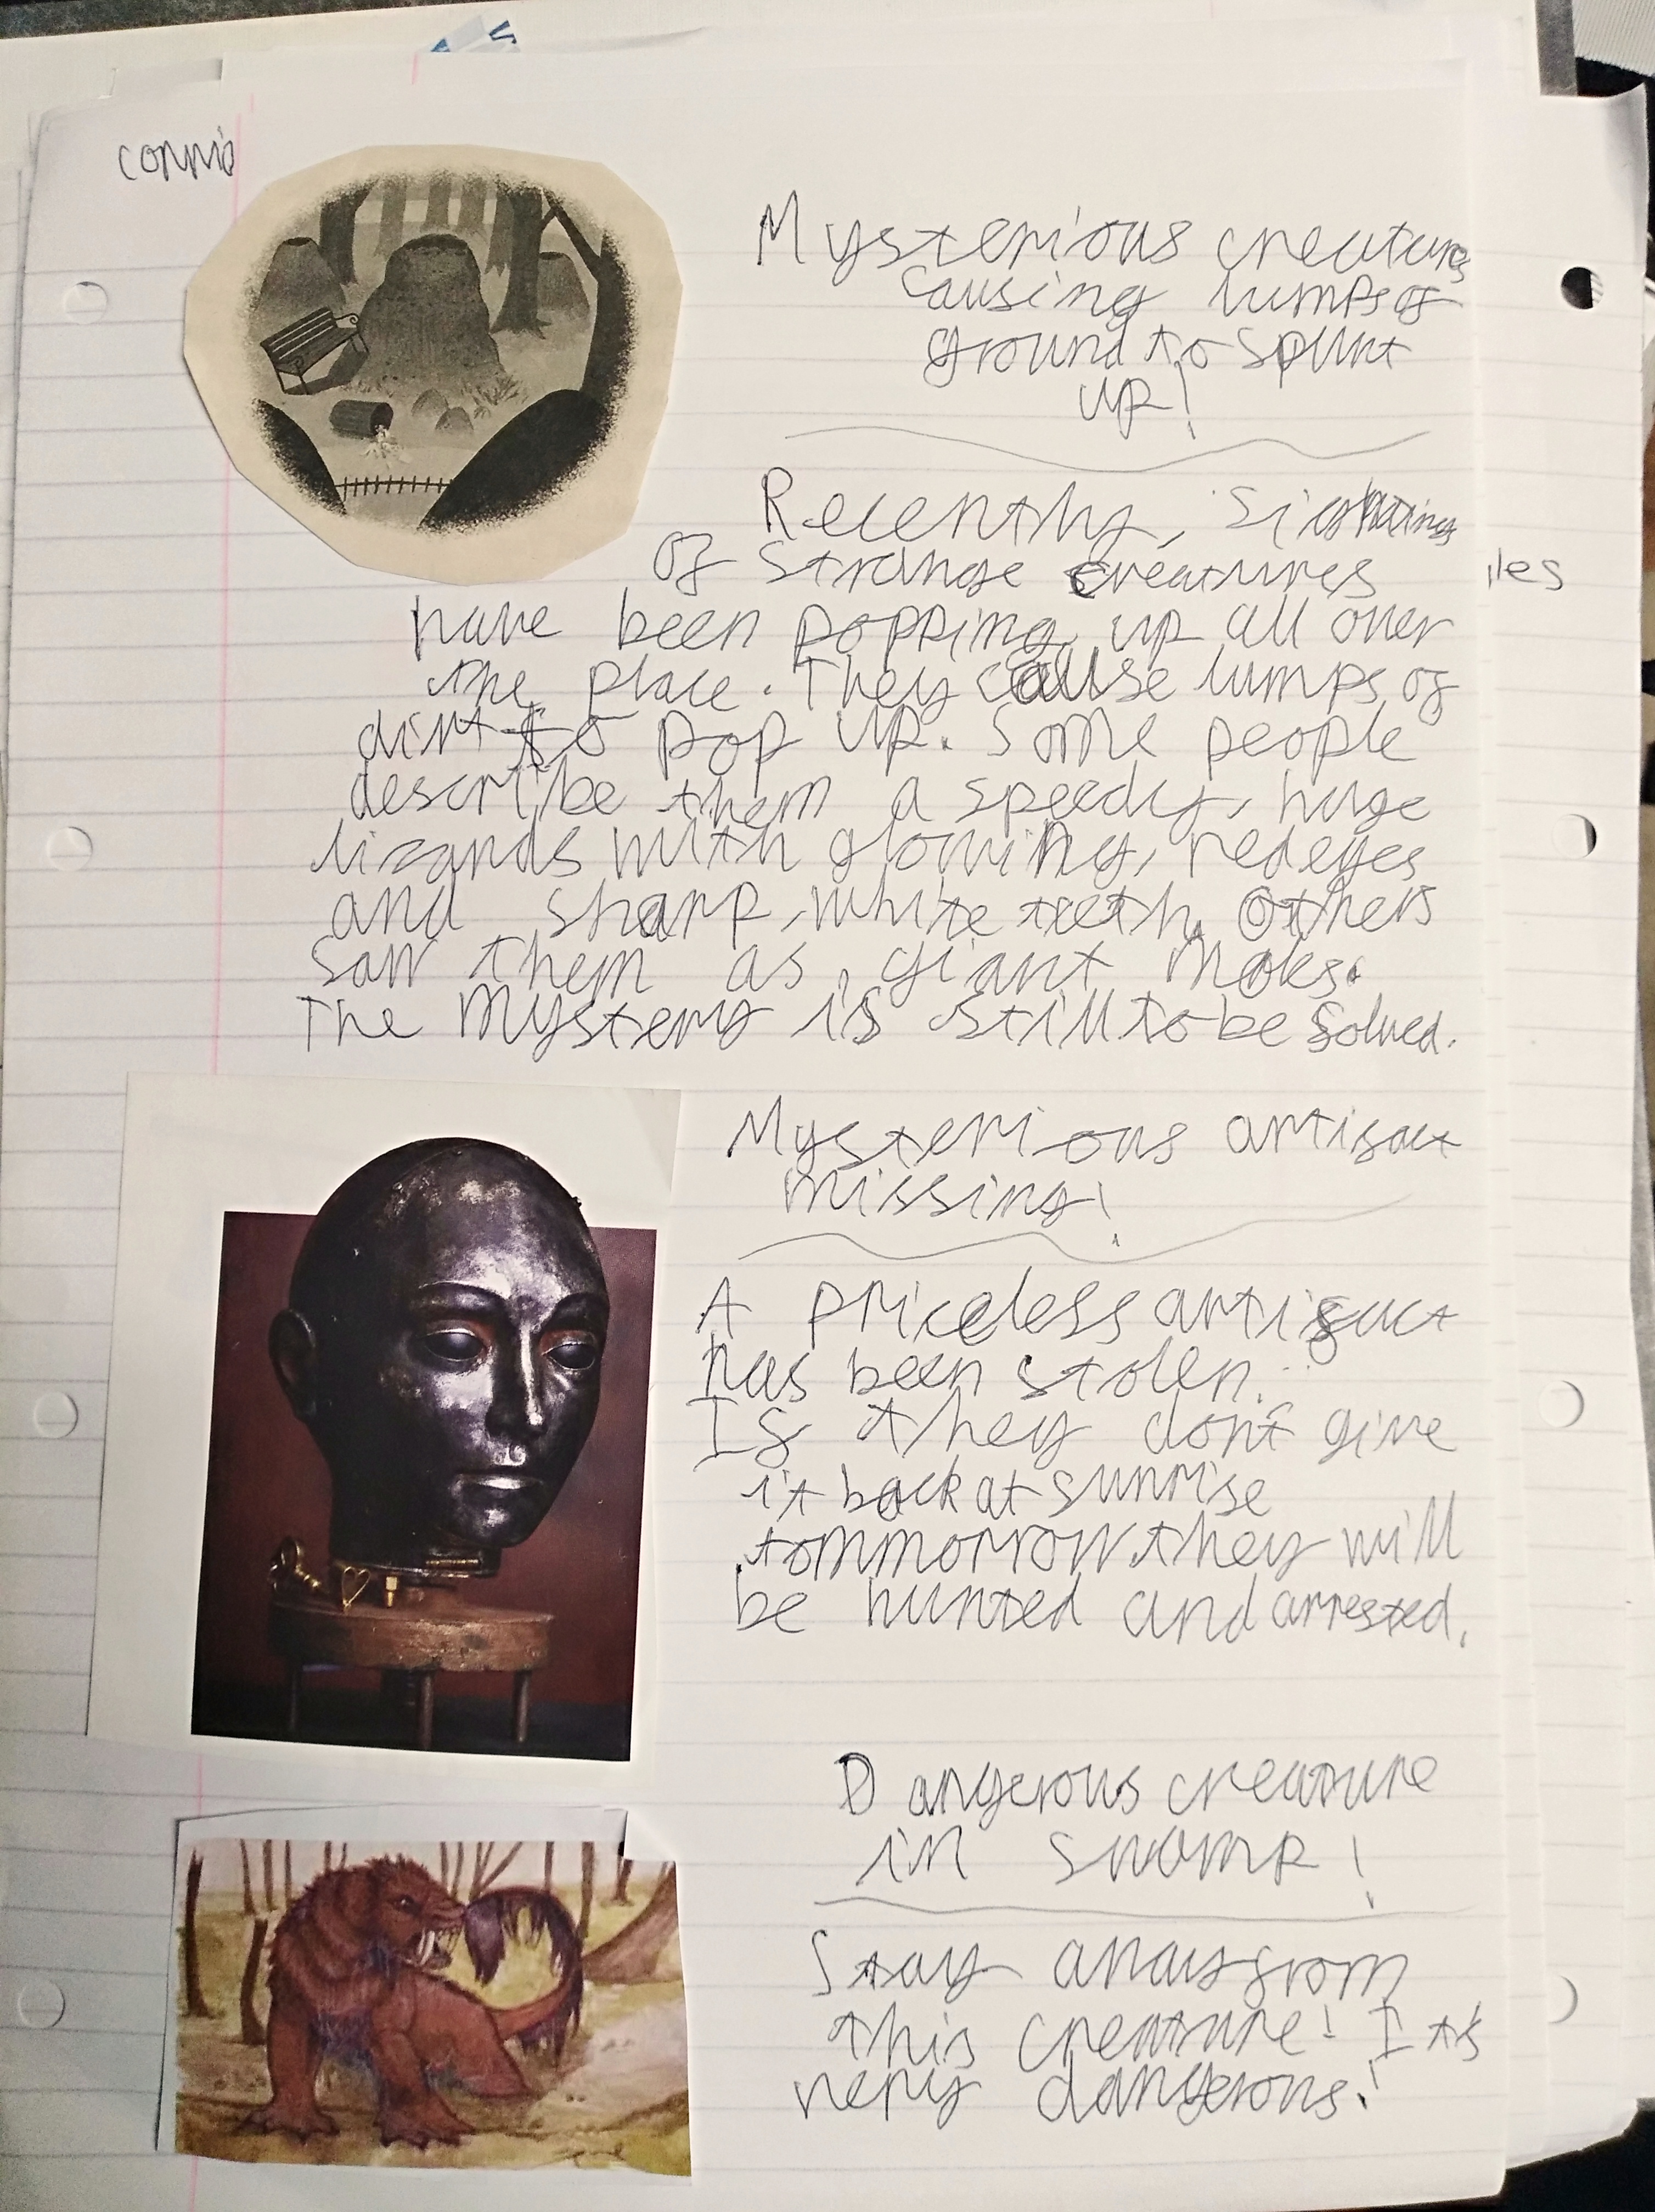 Mysterious creatures
causing lumps of
ground to spurt
up!
Recently, sightings
of strange creatures
have been popping up all over
the place. They cause lumps of
dirt to pop up. Some people
describe them a speedy, huge
lizards with glowing, red eyes
and sharp, white teeth. Others
saw them as giant moles.
The mystery is still to be solved.
Mysterious artifact
missing!
A priceless artifact
has been stolen.
If they don't give
it back at sunrise
tommorrow they will
be hunted and arrested.
Dangerous creature
in swamp!
Stay away from
this creature! It's
very dangerous!